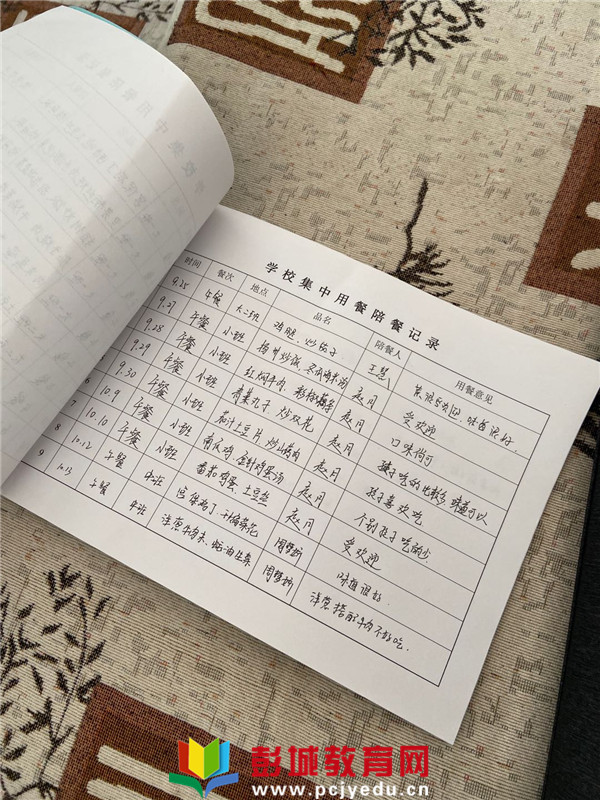 学校集中用餐陪餐记录
时间 餐次 地点 品名 陪餐人 用餐意见
9.25 午餐 大二班 鸡腿、炒茄子 王慧
9.27 午餐 小班 扬州炒饭 赵月 受欢迎
9.28 午餐 小班 红焖牛肉 赵月 口味尚可
9.29 午餐 小班 青菜丸子 炒双花 赵月 孩子吃的比较多 味道可以
6 9.30 午餐 小班 茄汁土豆片 炒山药肉 赵月 孩子喜欢吃
7 10.9 午餐 小班 金针鸡蛋汤 赵月 个别孩子吃的少
8 10.10 午餐 小班 番茄鸡蛋、土豆丝 赵月 受欢迎
8 10.12 午餐 中班 周 味道很好
9 10.13 午餐 中班 洋葱牛肉末、蚝油生菜 周 洋葱搭配牛肉不好吃.
彭城教育网
www.pcjyedu.cn